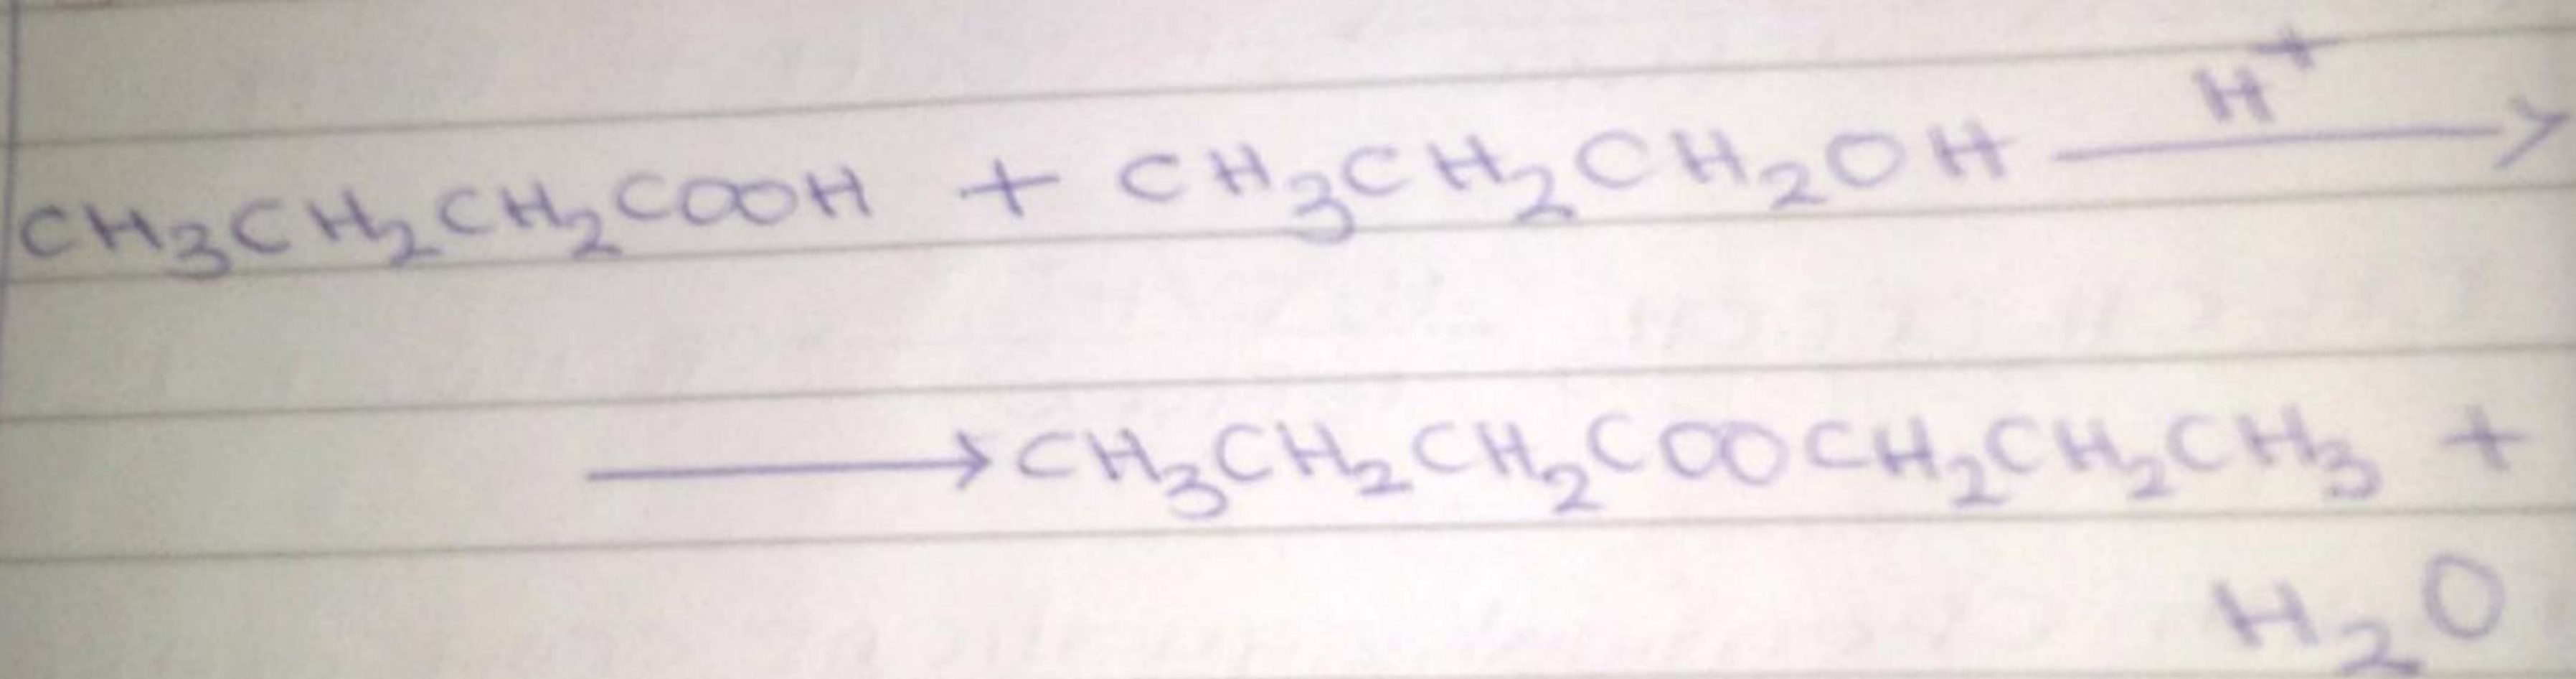 CH₃CH₂CH₂COOH + CH₃CH₂CH₂OH —H⁺→
→ CH₃CH₂CH₂COOCH₂CH₂CH₃ +
H₂O